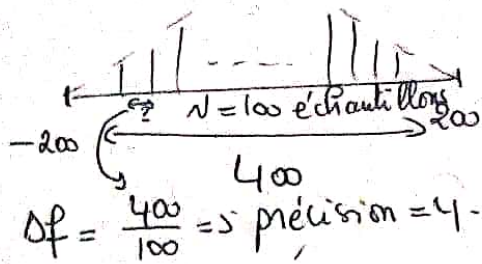 ?
N = 100 échantillons
-200
200
400
Δf = 400/100 => précision = 4.